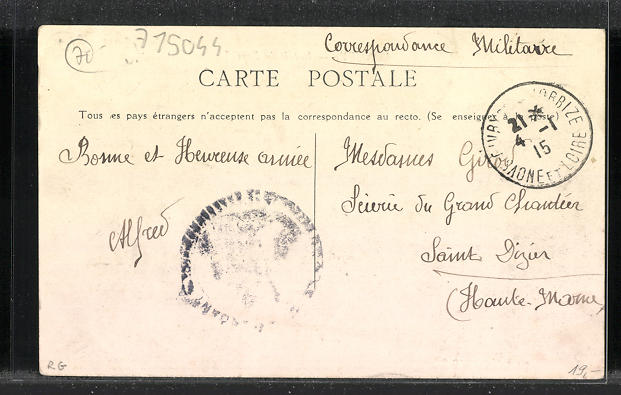 70
715044
Correspondance Militaire
CARTE POSTALE
Tous les pays étrangers n'acceptent pas la correspondance au recto. (Se renseigner à la poste)
21 *
4 -1
15
SAVONE ET LOIRE
Bonne et Heureuse année
Mesdames
Scierie du Grand Chantier
Alfred
Saint Dizier
(Haute-Marne)
RG
19,-